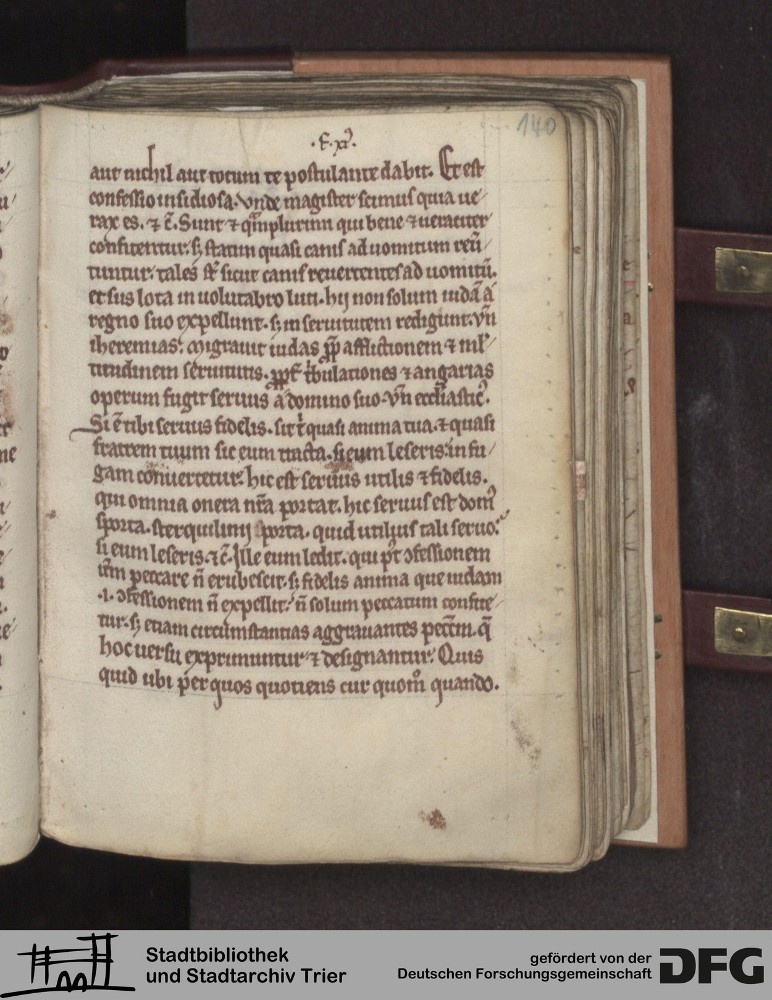 140
.F. xi.
aut nichil aut totum te postulante dabit. Et est
confessio insidiosa. vnde magister scimus quia ue/
rax es. ⁊ c̄. Sunt ⁊ qᷓmplurimi qui bene ⁊ ueraciter
confitentur. sꝫ statim quasi canis ad uomitum reũ/
tuntur. tales sͭ sicut canis reuertentes ad uomitũ.
et sus lota in uolutabro luti. hij non solum iudã a
regno suo expellunt. sꝫ in seruitutem redigunt. vñ
iheremias. Migrauit iudas ꝓp̄ afflictionem ⁊ ml̄/
titudinem seruitutis. ꝓp̄t̄ t̾bulationes ⁊ angarias
operum fugit seruus a domino suo. vñ eccl̄iastic⁹.
Si ē tibi seruus fidelis. sit t̾ quasi anima tua. ⁊ quasi
fratrem tuum sic eum tracta. si eum leseris. in fu/
gam conuertetur. hic est seruus utilis ⁊ fidelis.
qui omnia onera nr̄a portat. hic seruus est dom⁹
sporta. sterquilinij sporta. quid utilius tali seruo.
si eum leseris. ⁊ c̄. Ille eum ledit. qui p̾t ɔfessionem
itm̄ peccare ñ erubescit. sꝫ fidelis anima que iudam
.i. ɔfessionem ñ expellit. ñ solum peccatum confite/
tur. sꝫ etiam circumstantias aggrauantes pecc̄m. q̄
hoc uersu exprimuntur ⁊ designantur. Quis
quid ubi per quos quotiens cur quom̊ quando.
Stadtbibliothek
und Stadtarchiv Trier
gefördert von der
Deutschen Forschungsgemeinschaft
DFG